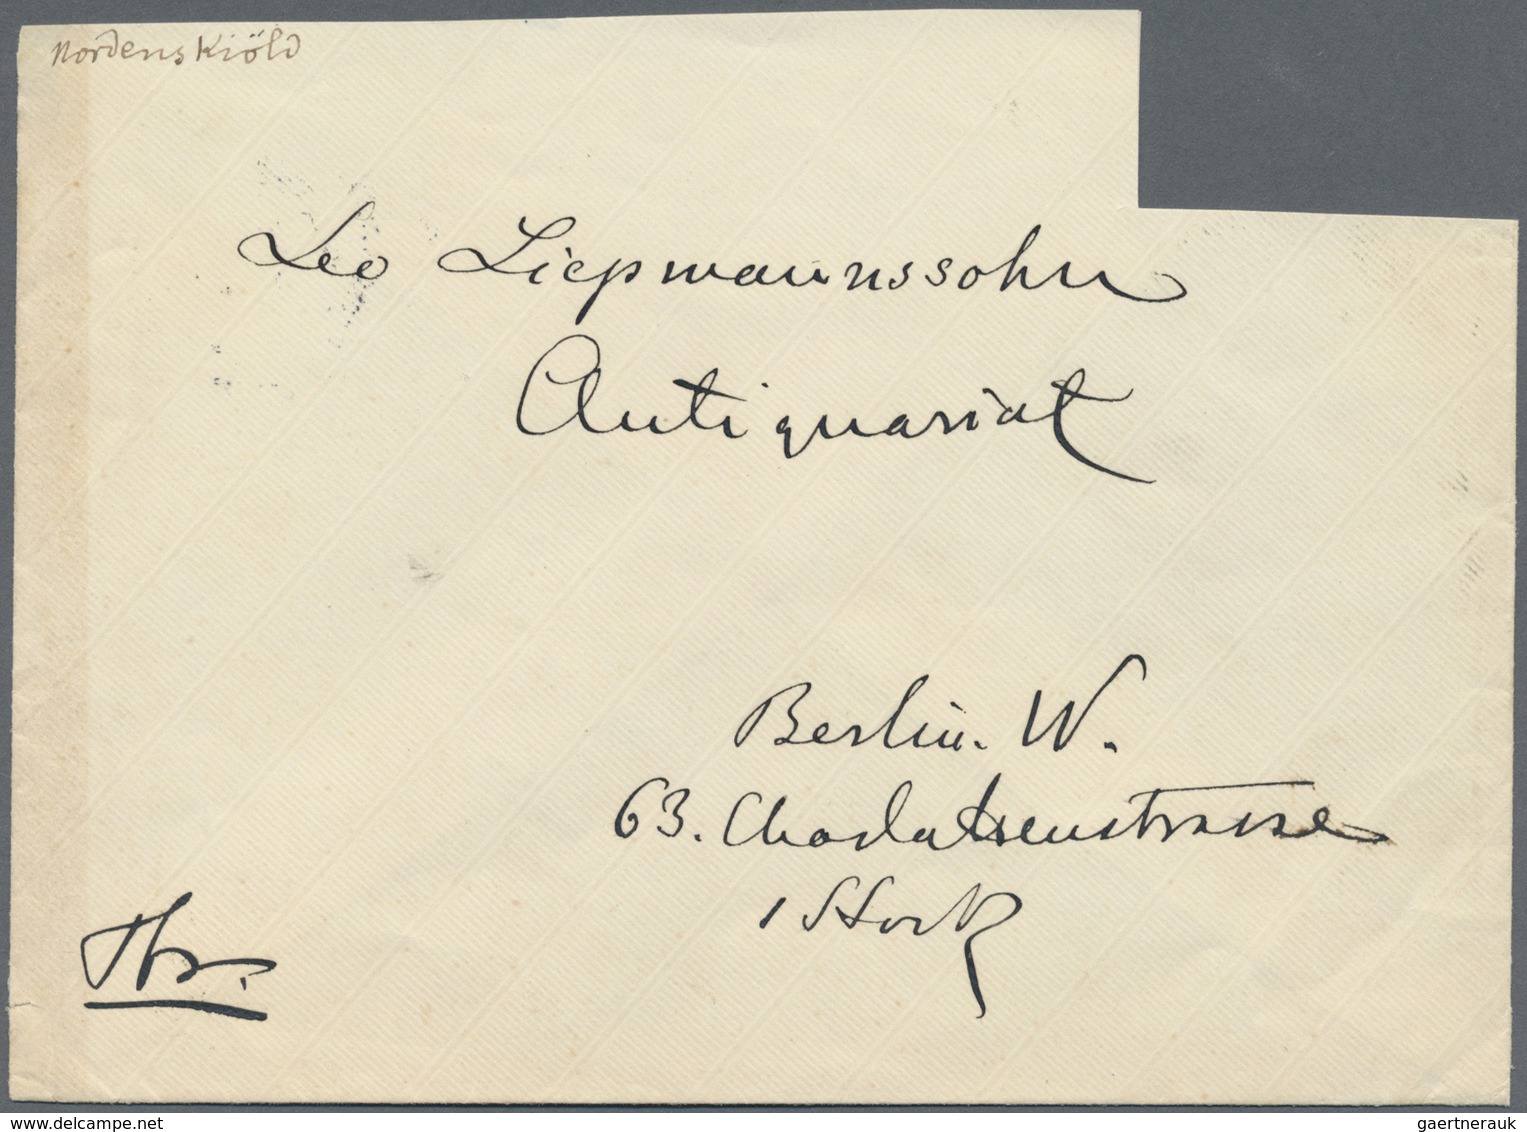 Nordenskiöld
Leo Liepmannssohn
Antiquariat
Berlin. W.
63. Charlottenstrasse
1 Stock
delcampe.net
gaertnerauk